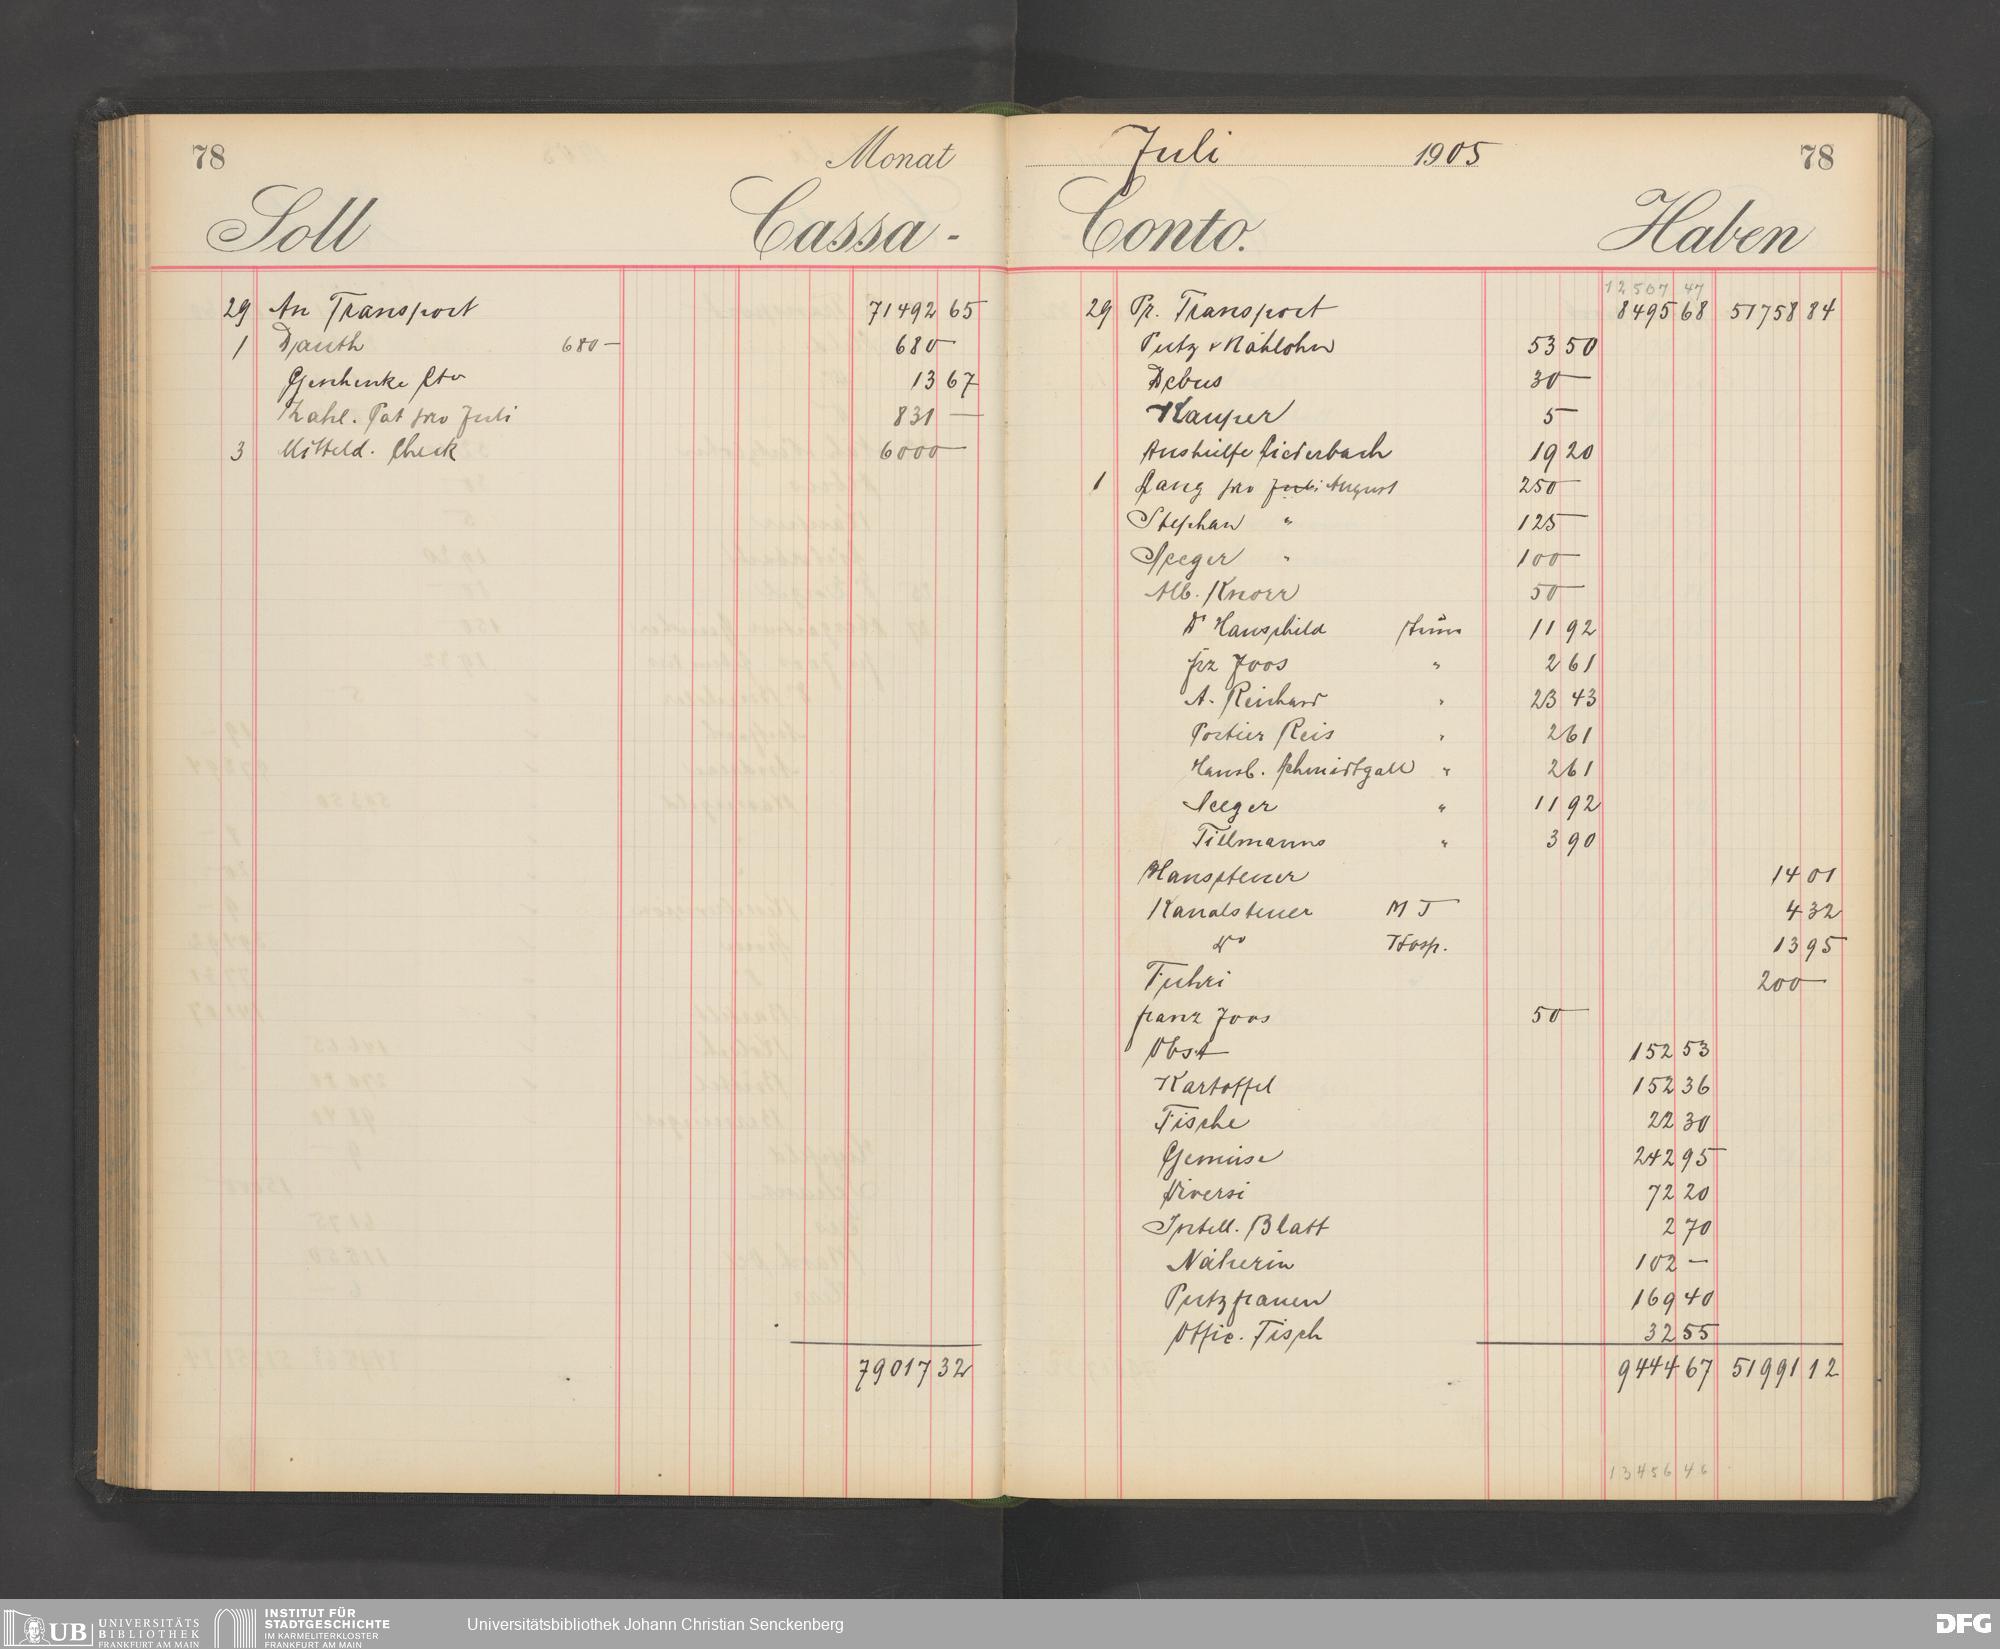 78 Monat
Soll Cassa-
29 An Transport 71492 65
1 Dauth 680 — 680 —
Geschenke Cto 13 67
Zahl. Pat pro Juli 831 —
3 Mitteld. Check 6000 —
79017 32
Juli 1905 78
Conto. Haben
12507 47
29 Pr. Transport 8495 68 51758 84
Putz & Nählohn 53 50
Debus 30 —
Kauper 5 —
Aushülfe Liederbach 19 20
1 Lang pro Juli August 250 —
Stephan " 125 —
Seeger " 100 —
Alb. Knorr 50 —
Dr Hauschild 11 92
frz Joos " 2 61
A. Reichard " 23 43
Portier Reis " 2 61
Hausb. Schmidtgall " 2 61
Seeger " 11 92
Tillmanns " 3 90
Haussteuer 14 01
Kanalsteuer M J 4 32
do Hosp. 13 95
Fuhri 200 —
franz Joos 50 —
Obst 152 53
Kartoffel 152 36
Fische 22 30
Gemüse 242 95
Diversi 72 20
Intell. Blatt 2 70
Näherin 102 —
Putzfrauen 169 40
Offic. Tisch 32 55
9444 67 51991 12
13456 46
UB UNIVERSITÄTS
BIBLIOTHEK
FRANKFURT AM MAIN
INSTITUT FÜR
STADTGESCHICHTE
IM KARMELITERKLOSTER
FRANKFURT AM MAIN
Universitätsbibliothek Johann Christian Senckenberg
DFG